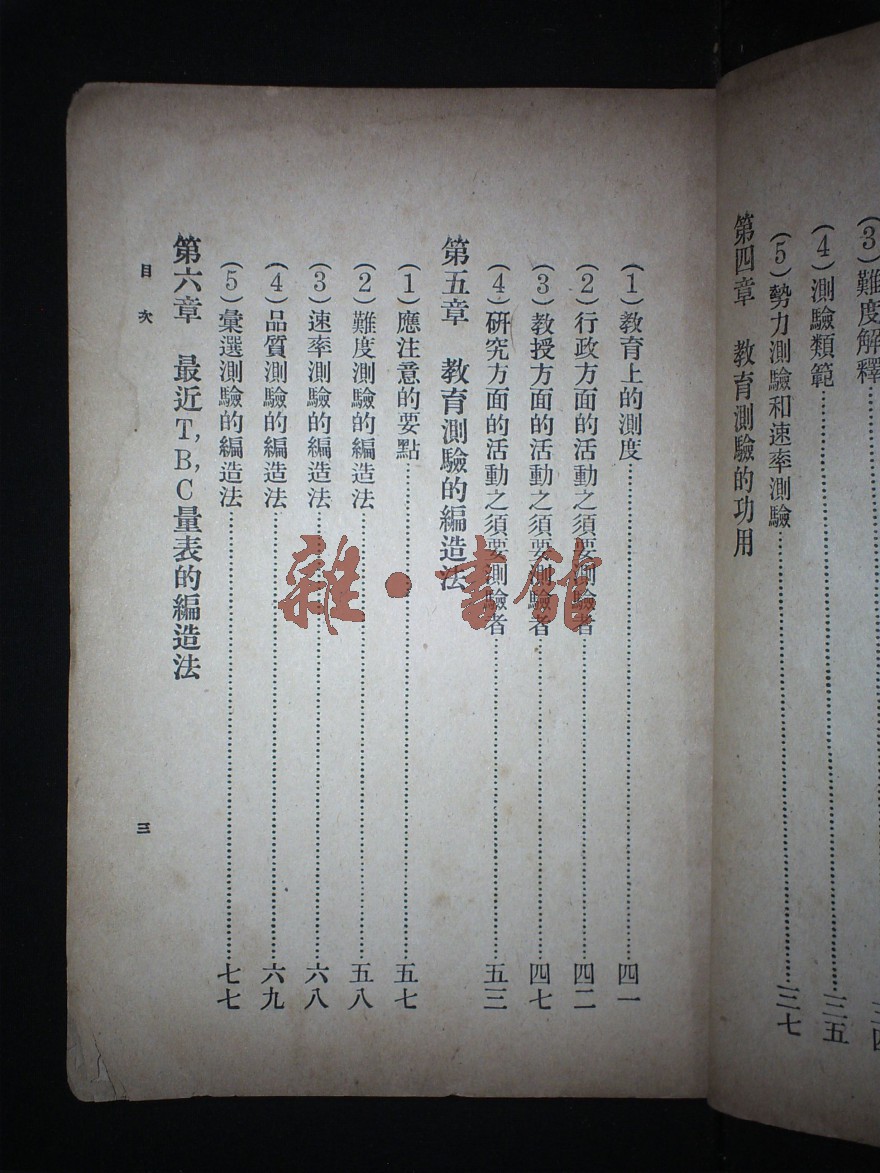 (3)難度解釋
(4)測驗類範……三五
(5)勢力測驗和速率測驗……三七
第四章 教育測驗的功用
(1)教育上的測度……四一
(2)行政方面的活動之須要測驗者……四二
(3)教授方面的活動之須要測驗者……四七
(4)研究方面的活動之須要測驗者……五三
第五章 教育測驗的編造法
(1)應注意的要點……五七
(2)難度測驗的編造法……五八
(3)速率測驗的編造法……六八
(4)品質測驗的編造法……六九
(5)彙選測驗的編造法……七七
第六章 最近T,B,C量表的編造法
目次
三
雜·書館